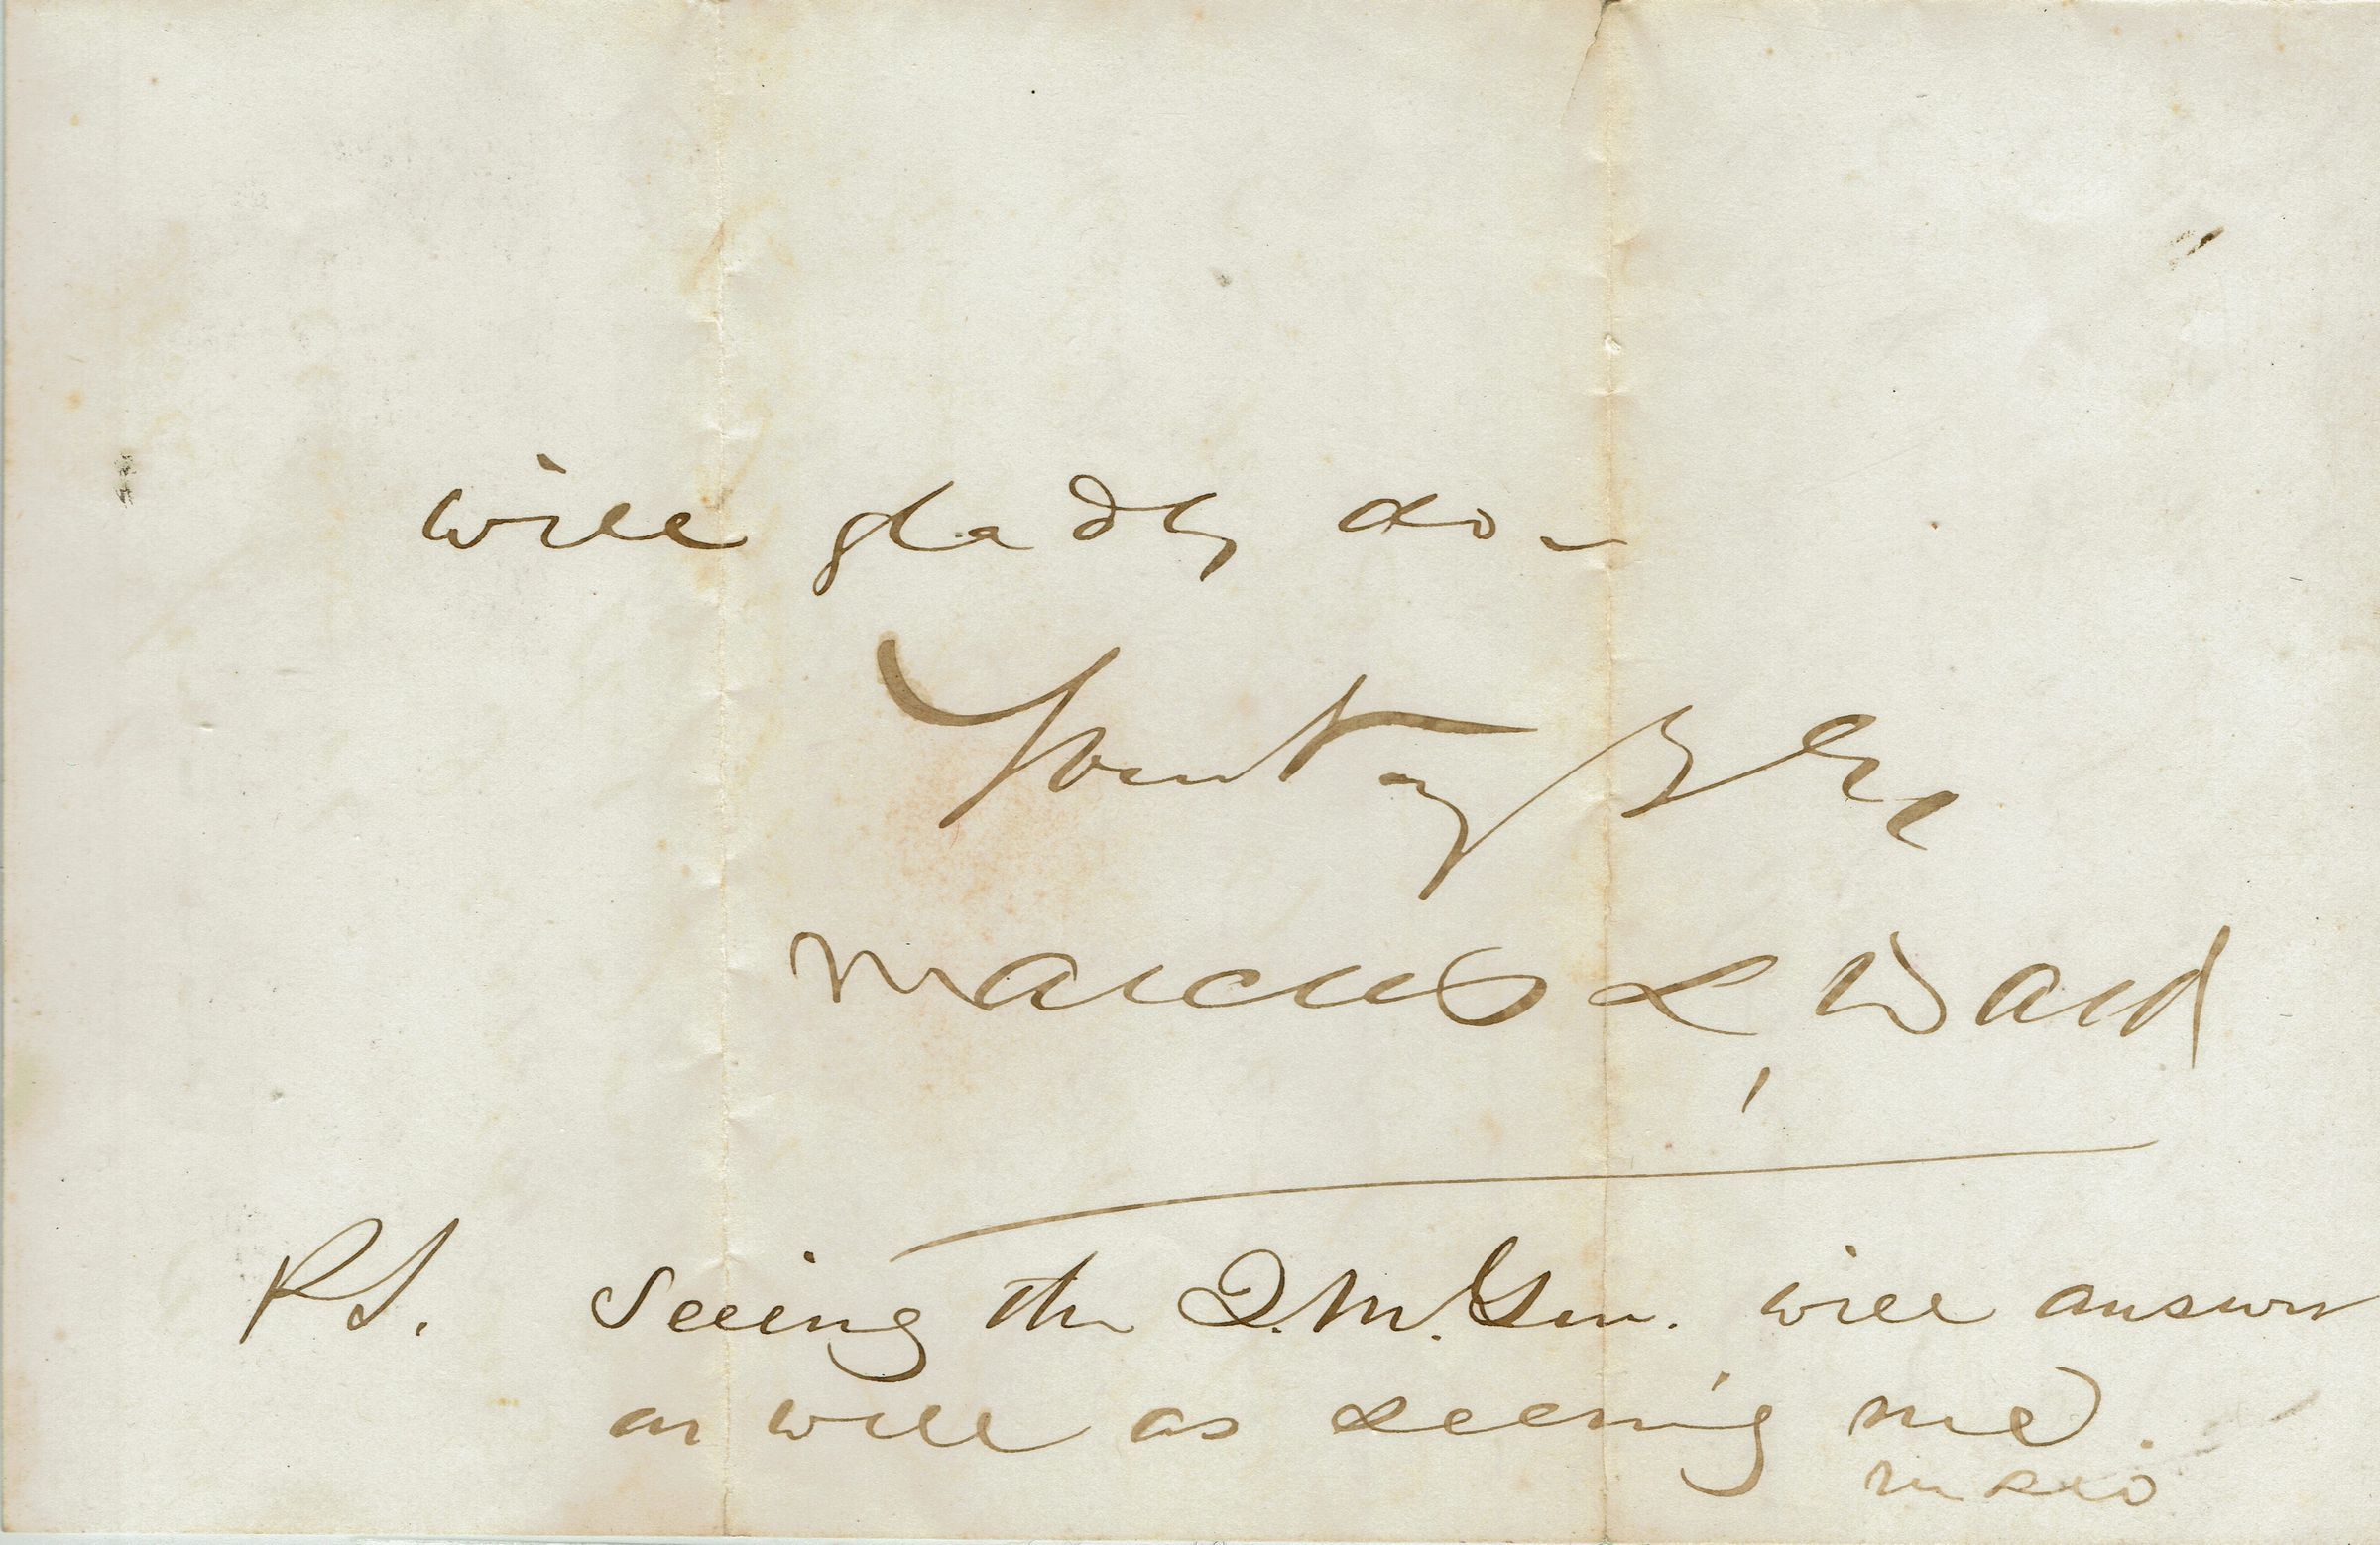 will gladly do -
Yours truly
Marcus L, Ward
P.S. Seeing the Q.M. Gen. will answer
as well as seeing me.